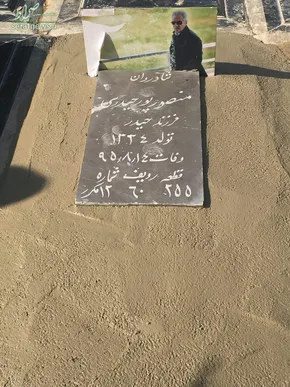 شادروان
منصور پورحیدری
فرزند حیدر
تولد ۱۳۲٤
وفات ۱٤ ر۸ر ۹۵
قطعه ردیف شماره
۲۵۵ ۶۰ ۱۲ مکرر